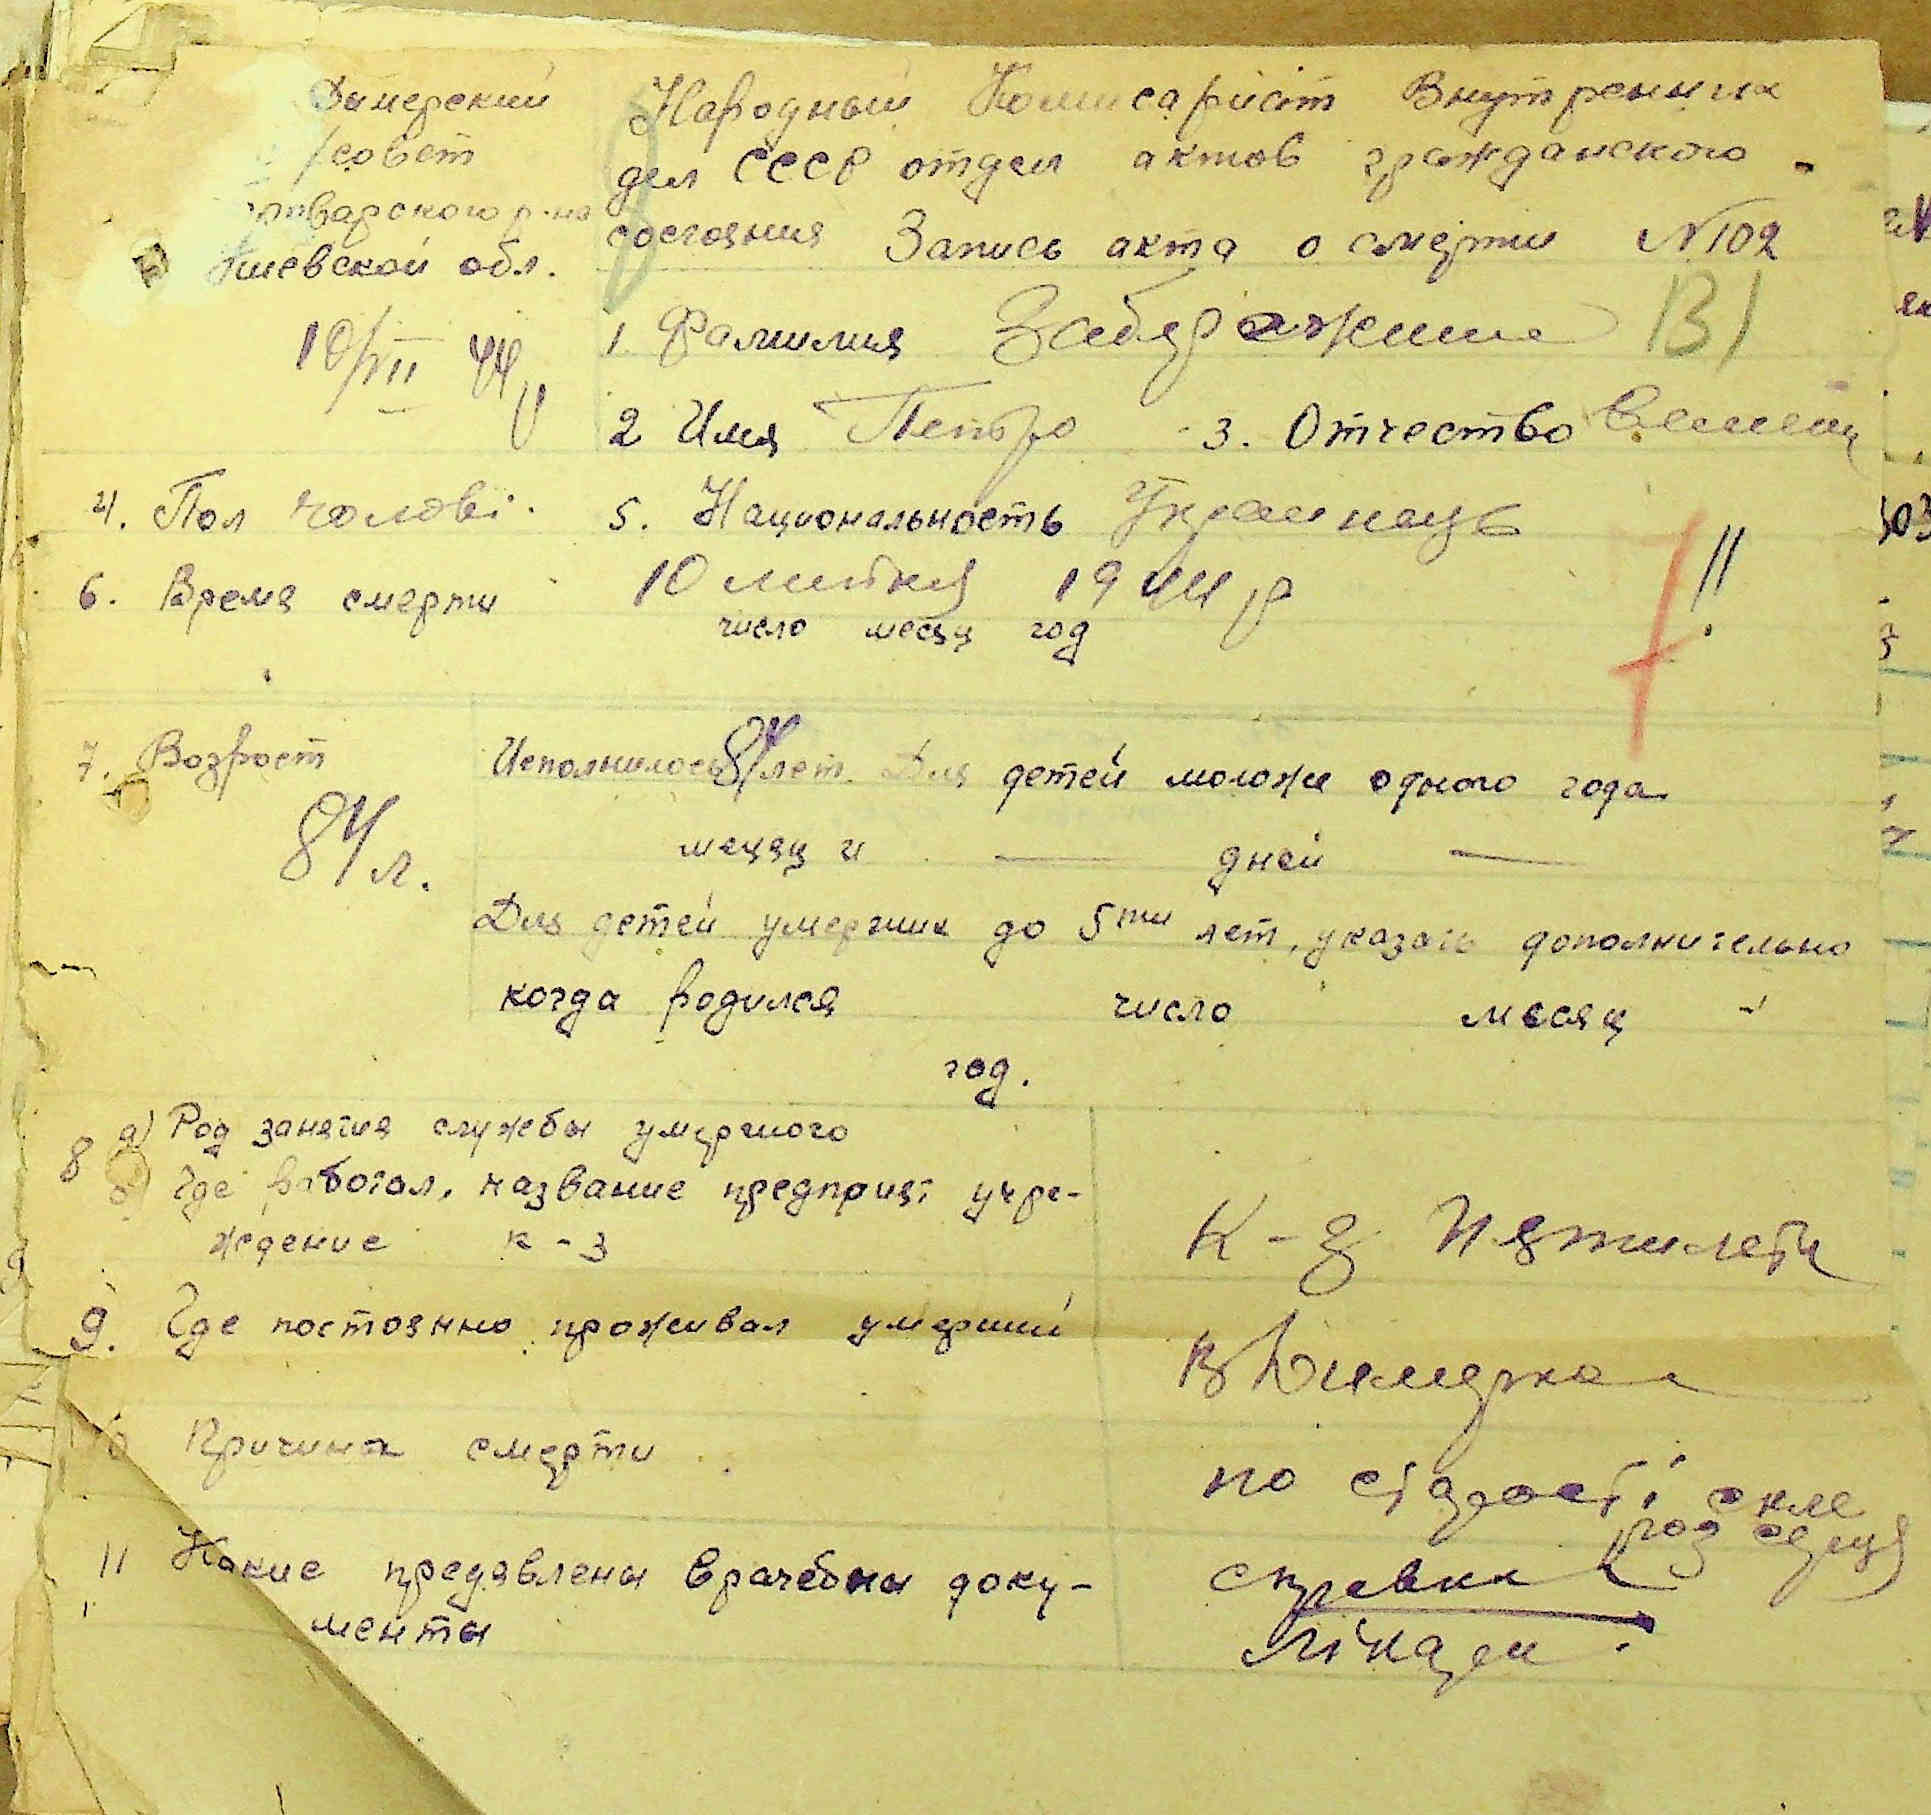 Дымерский
/совет
варского р-на
Киевской обл.
10/VII 44 р
Народный Комисариат Внутренних
дел СССР отдел актов гражданского
состояния Запись акта о смерти N102
1. Фамилия
2 Имя Петро 3. Отчество
4. Пол чолові. 5. Национальность Украинець
6. Время смерти 10 липня 1944 р
число месяц год
7. Возраст Исполнилось 84 лет. Для детей моложе одного года
84 л.
месяц и — дней —
Для детей умерших до 5ти лет, указать дополнительно
когда родился число месяц
год.
8 а) Род занятия службы умершого
б) Где работал, название предприят учре-
ждение к-з
К-з Пятилетки
9. Где постоянно проживал умерший
в Димерка
Причина смерти
по старості скле
роз серця
11 Какие предявлены врачебны доку-
менты
справка
лікаря.